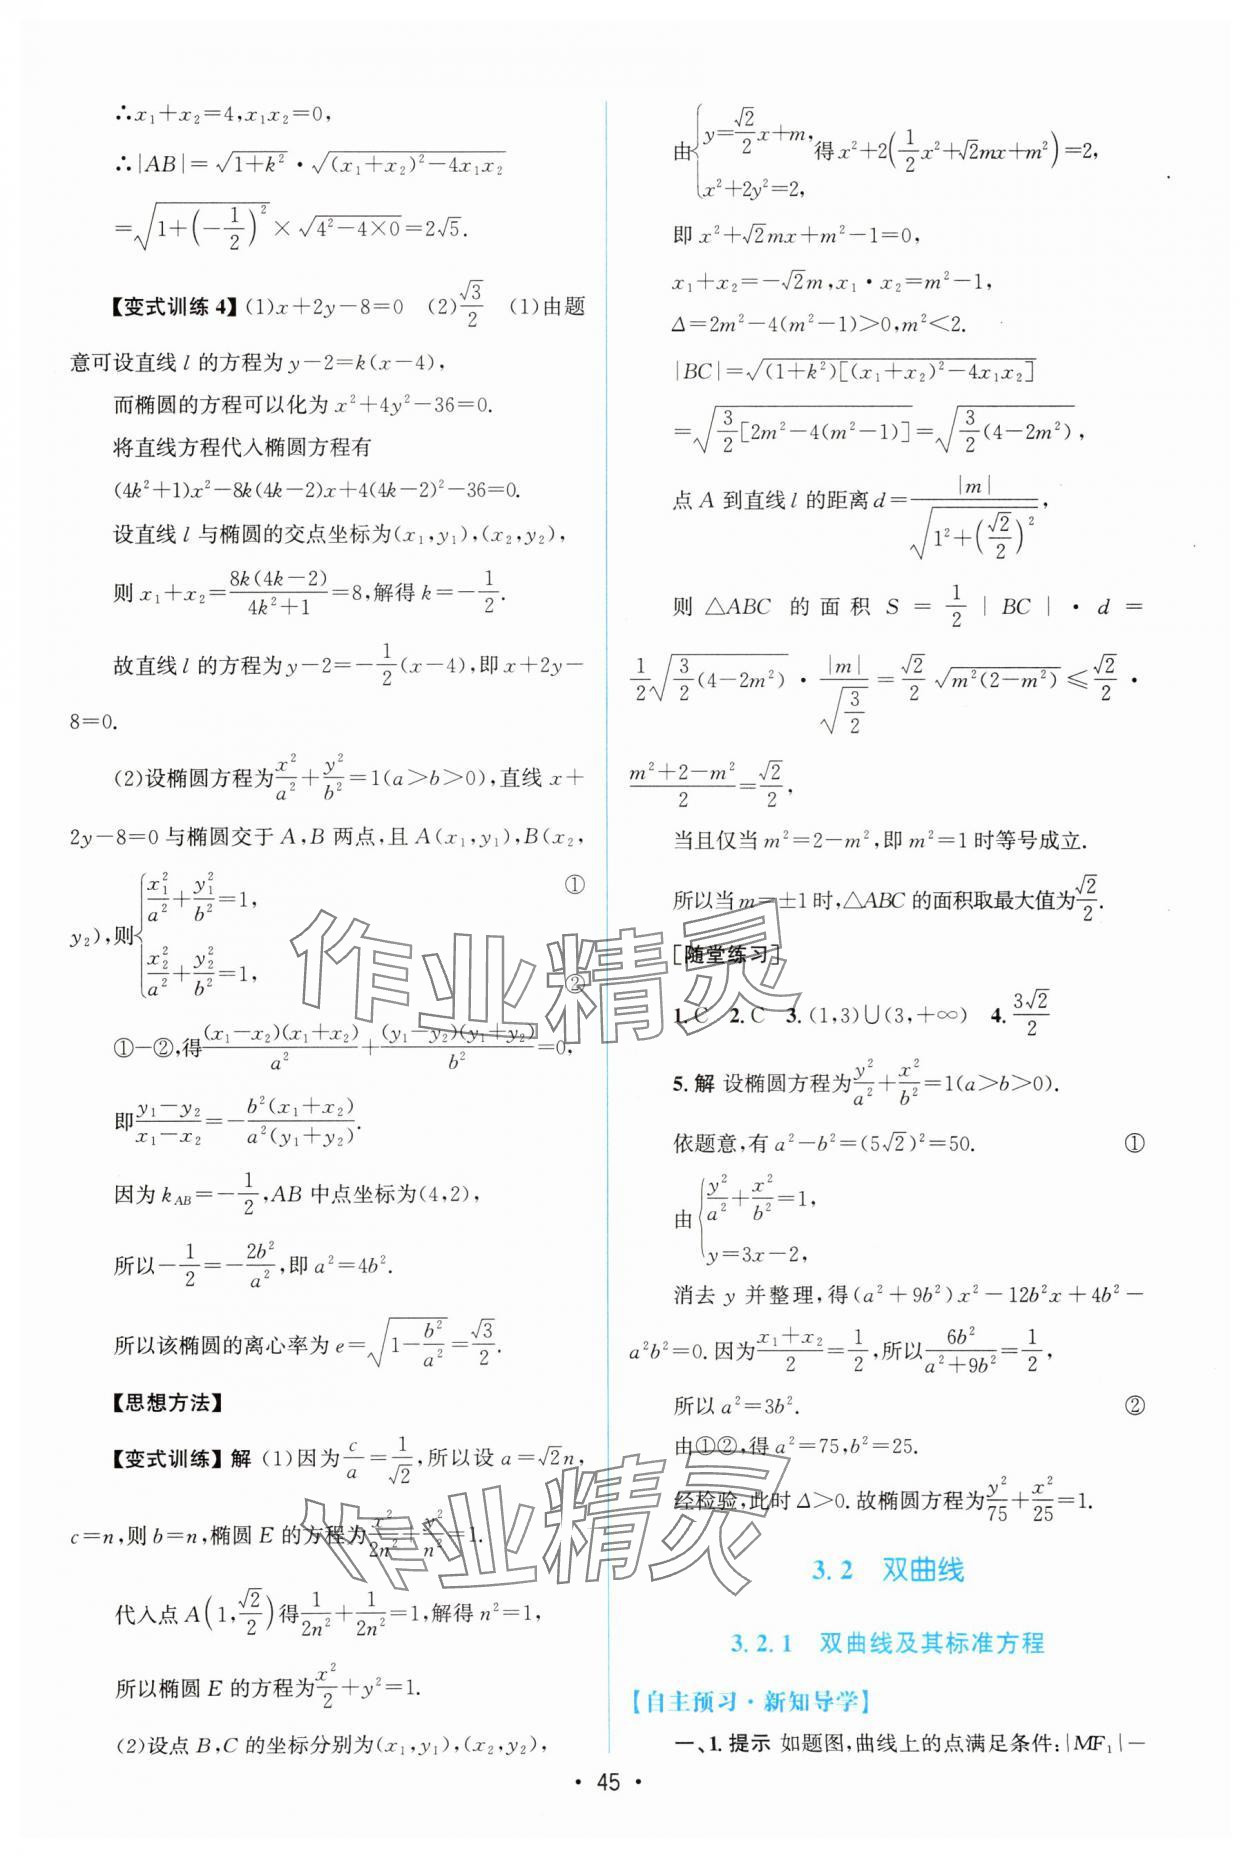 ∴x₁+x₂=4,x₁x₂=0,
∴|AB|=√(1+k²)·√((x₁+x₂)²-4x₁x₂)
=√(1+(-1/2)²)×√(4²-4×0)=2√5.
【变式训练4】(1)x+2y-8=0 (2)√3/2 (1)由题
意可设直线 l 的方程为 y-2=k(x-4),
而椭圆的方程可以化为 x²+4y²-36=0.
将直线方程代入椭圆方程有
(4k²+1)x²-8k(4k-2)x+4(4k-2)²-36=0.
设直线 l 与椭圆的交点坐标为(x₁,y₁),(x₂,y₂),
则 x₁+x₂=8k(4k-2)/(4k²+1)=8,解得 k=-1/2.
故直线 l 的方程为 y-2=-1/2(x-4),即 x+2y-
8=0.
(2)设椭圆方程为x²/a²+y²/b²=1(a>b>0),直线 x+
2y-8=0 与椭圆交于 A,B 两点,且 A(x₁,y₁),B(x₂,
y₂),则{x₁²/a²+y₁²/b²=1, ①
x₂²/a²+y₂²/b²=1, ②
①-②,得(x₁-x₂)(x₁+x₂)/a²+(y₁-y₂)(y₁+y₂)/b²=0,
即(y₁-y₂)/(x₁-x₂)=-b²(x₁+x₂)/a²(y₁+y₂).
因为 k_AB=-1/2,AB 中点坐标为(4,2),
所以-1/2=-2b²/a²,即 a²=4b².
所以该椭圆的离心率为 e=√(1-b²/a²)=√3/2.
【思想方法】
【变式训练】解 (1)因为c/a=1/√2,所以设 a=√2n,
c=n,则 b=n,椭圆 E 的方程为x²/2n²+y²/n²=1.
代入点 A(1,√2/2)得1/2n²+1/2n²=1,解得 n²=1,
所以椭圆 E 的方程为x²/2+y²=1.
(2)设点 B,C 的坐标分别为(x₁,y₁),(x₂,y₂),
由{y=√2/2x+m,
x²+2y²=2, 得 x²+2(1/2x²+√2mx+m²)=2,
即 x²+√2mx+m²-1=0,
x₁+x₂=-√2m,x₁·x₂=m²-1,
Δ=2m²-4(m²-1)>0,m²<2.
|BC|=√((1+k²)[(x₁+x₂)²-4x₁x₂])
=√(3/2[2m²-4(m²-1)])=√(3/2(4-2m²)),
点 A 到直线 l 的距离 d=|m|/√(1²+(√2/2)²),
则 △ABC 的面积 S=1/2|BC|·d=
1/2√(3/2(4-2m²))·|m|/√(3/2)=√2/2√(m²(2-m²))≤√2/2·
(m²+2-m²)/2=√2/2,
当且仅当 m²=2-m²,即 m²=1 时等号成立.
所以当 m=±1时,△ABC 的面积取最大值为√2/2.
[随堂练习]
1.C 2.C 3.(1,3)∪(3,+∞) 4.3√2/2
5.解 设椭圆方程为y²/a²+x²/b²=1(a>b>0).
依题意,有 a²-b²=(5√2)²=50. ①
由{y²/a²+x²/b²=1,
y=3x-2,
消去 y 并整理,得(a²+9b²)x²-12b²x+4b²-
a²b²=0.因为(x₁+x₂)/2=1/2,所以6b²/(a²+9b²)=1/2,
所以 a²=3b². ②
由①②,得 a²=75,b²=25.
经检验,此时 Δ>0.故椭圆方程为y²/75+x²/25=1.
3.2 双曲线
3.2.1 双曲线及其标准方程
【自主预习·新知导学】
一、1.提示 如题图,曲线上的点满足条件:|MF₁|-
·45·
作业精灵
作业精灵